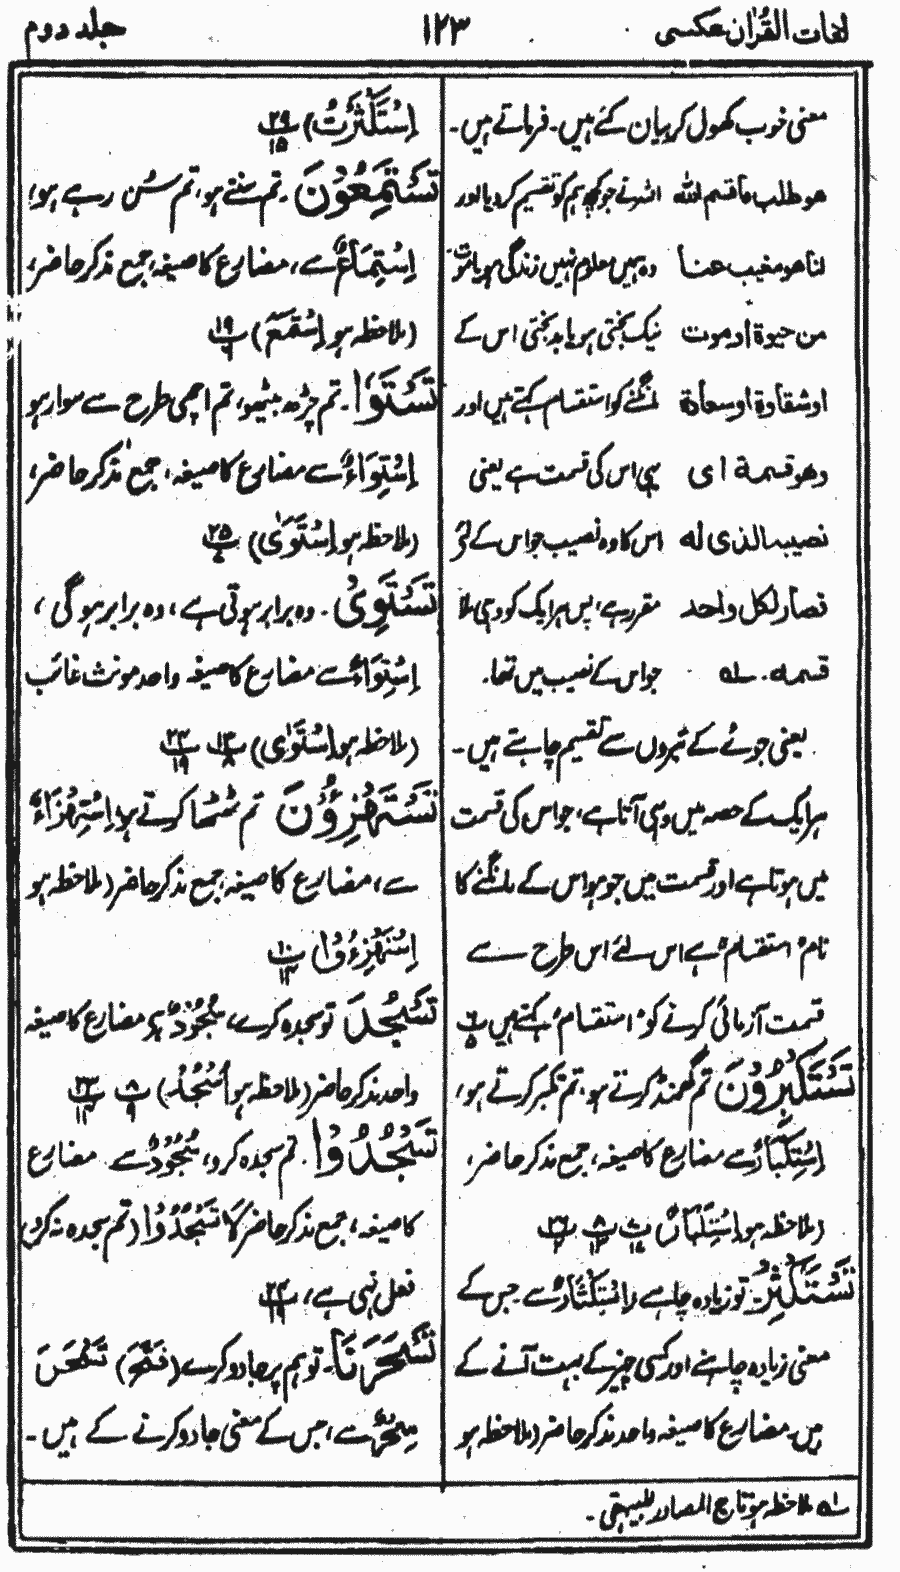 لغات القرآن عکسی
۱۲۳
جلد دوم
معنی خوب کھول کر بیان کئے ہیں۔ فرماتے ہیں۔
هو طلب ما قسم الله اللہ نے جو کچھ ہم کو تقسیم کر دیا اور
لنا هو مغيب عنا وہ ہمیں معلوم نہیں زندگی ہو یا موت
من حيوة او موت نیک بختی ہو یا بدبختی اس کے
او شقاوة او سعادة مانگنے کو استقسام کہتے ہیں اور
وهو قسمة ای یہی اس کی قسمت ہے یعنی
نصيبه الذی له اس کا وہ نصیب جو اس کے لئے
فصار لكل واحد مقرر ہے، پس ہر ایک کو وہی ملا
قسمه ۔ لہ جو اس کے نصیب میں تھا۔
یعنی جوئے کے تیروں سے تقسیم چاہتے ہیں۔
ہر ایک کے حصہ میں وہی آتا ہے، جو اس کی قسمت
میں ہوتا ہے اور قسمت میں جو ہو اس کے مانگنے کا
نام استقسام ہے اس لئے اس طرح سے
قسمت آزمائی کرنے کو استقسام کہتے ہیں
تَسْتَكْبِرُونَ تم گھمنڈ کرتے ہو، تم تکبر کرتے ہو،
اِسْتِكْبَارٌ سے مضارع کا صیغہ، جمع مذکر حاضر،
(ملاحظہ ہو اِسْتِكْبَارٌ)
تَسْتَكْثِرُ۔ تو زیادہ چاہے (اِسْتِكْثَارٌ سے۔ جس کے
معنی زیادہ چاہنے اور کسی چیز کے بہت آنے کے
ہیں۔ مضارع کا صیغہ واحد مذکر حاضر (ملاحظہ ہو
اِسْتَكْثَرْتُ) ۲۹ ۱۵
تَسْتَمِعُوْنَ۔ تم سنتے ہو، تم سُن رہے ہو،
اِسْتِمَاعٌ سے، مضارع کا صیغہ، جمع مذکر حاضر،
(ملاحظہ ہو اِسْتَمَعَ) ۱۹
تَسْتَوٗا۔ تم چڑھ بیٹھو، تم اچھی طرح سے سوار ہو
اِسْتِوَاءٌ سے مضارع کا صیغہ، جمع مذکر حاضر،
(ملاحظہ ہو اِسْتَوٰى) ۲۵
تَسْتَوِىْ۔ وہ برابر ہوتی ہے، وہ برابر ہوگی،
اِسْتِوَاءٌ سے مضارع کا صیغہ واحد مونث غائب
(ملاحظہ ہو اِسْتَوٰى) ۱۳ ۸ ۲۳ ۱۹
تَسْتَهْزِؤُنَ تم ٹھٹھا کرتے ہو اِسْتِهْزَاءٌ
سے، مضارع کا صیغہ، جمع مذکر حاضر (ملاحظہ ہو
اِسْتَهْزِءُوْا) ۱۰ ۱۴
تَسْجُدَ تو سجدہ کرے، سُجُوْدٌ سے مضارع کا صیغہ
واحد مذکر حاضر (ملاحظہ ہو اُسْجُدْ) ۸ ۹ ۲۳
تَسْجُدُوْا۔ تم سجدہ کرو، سُجُوْدٌ سے مضارع
کا صیغہ، جمع مذکر حاضر لَا تَسْجُدُوْا (تم سجدہ نہ کرو)
فعل نہی ہے، ۲۴ ۱۹
تَسْحَرَنَا۔ تو ہم پر جادو کرے (فَتَحَ) تَسْحَرَ
سِحْرٌ سے، جس کے معنی جادو کرنے کے ہیں۔
لہ ملاحظہ ہو تاج المصادر للبیہقی۔